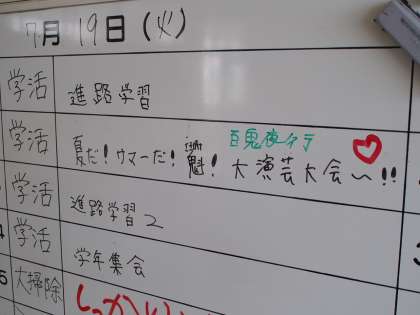 7月 19日(火)
学活 進路学習
百鬼夜行
学活 夏だ!ウマーだ! 魁! 大演芸大会〜!!
学活 進路学習2
学活 学年集会
5 大掃除 しっかり